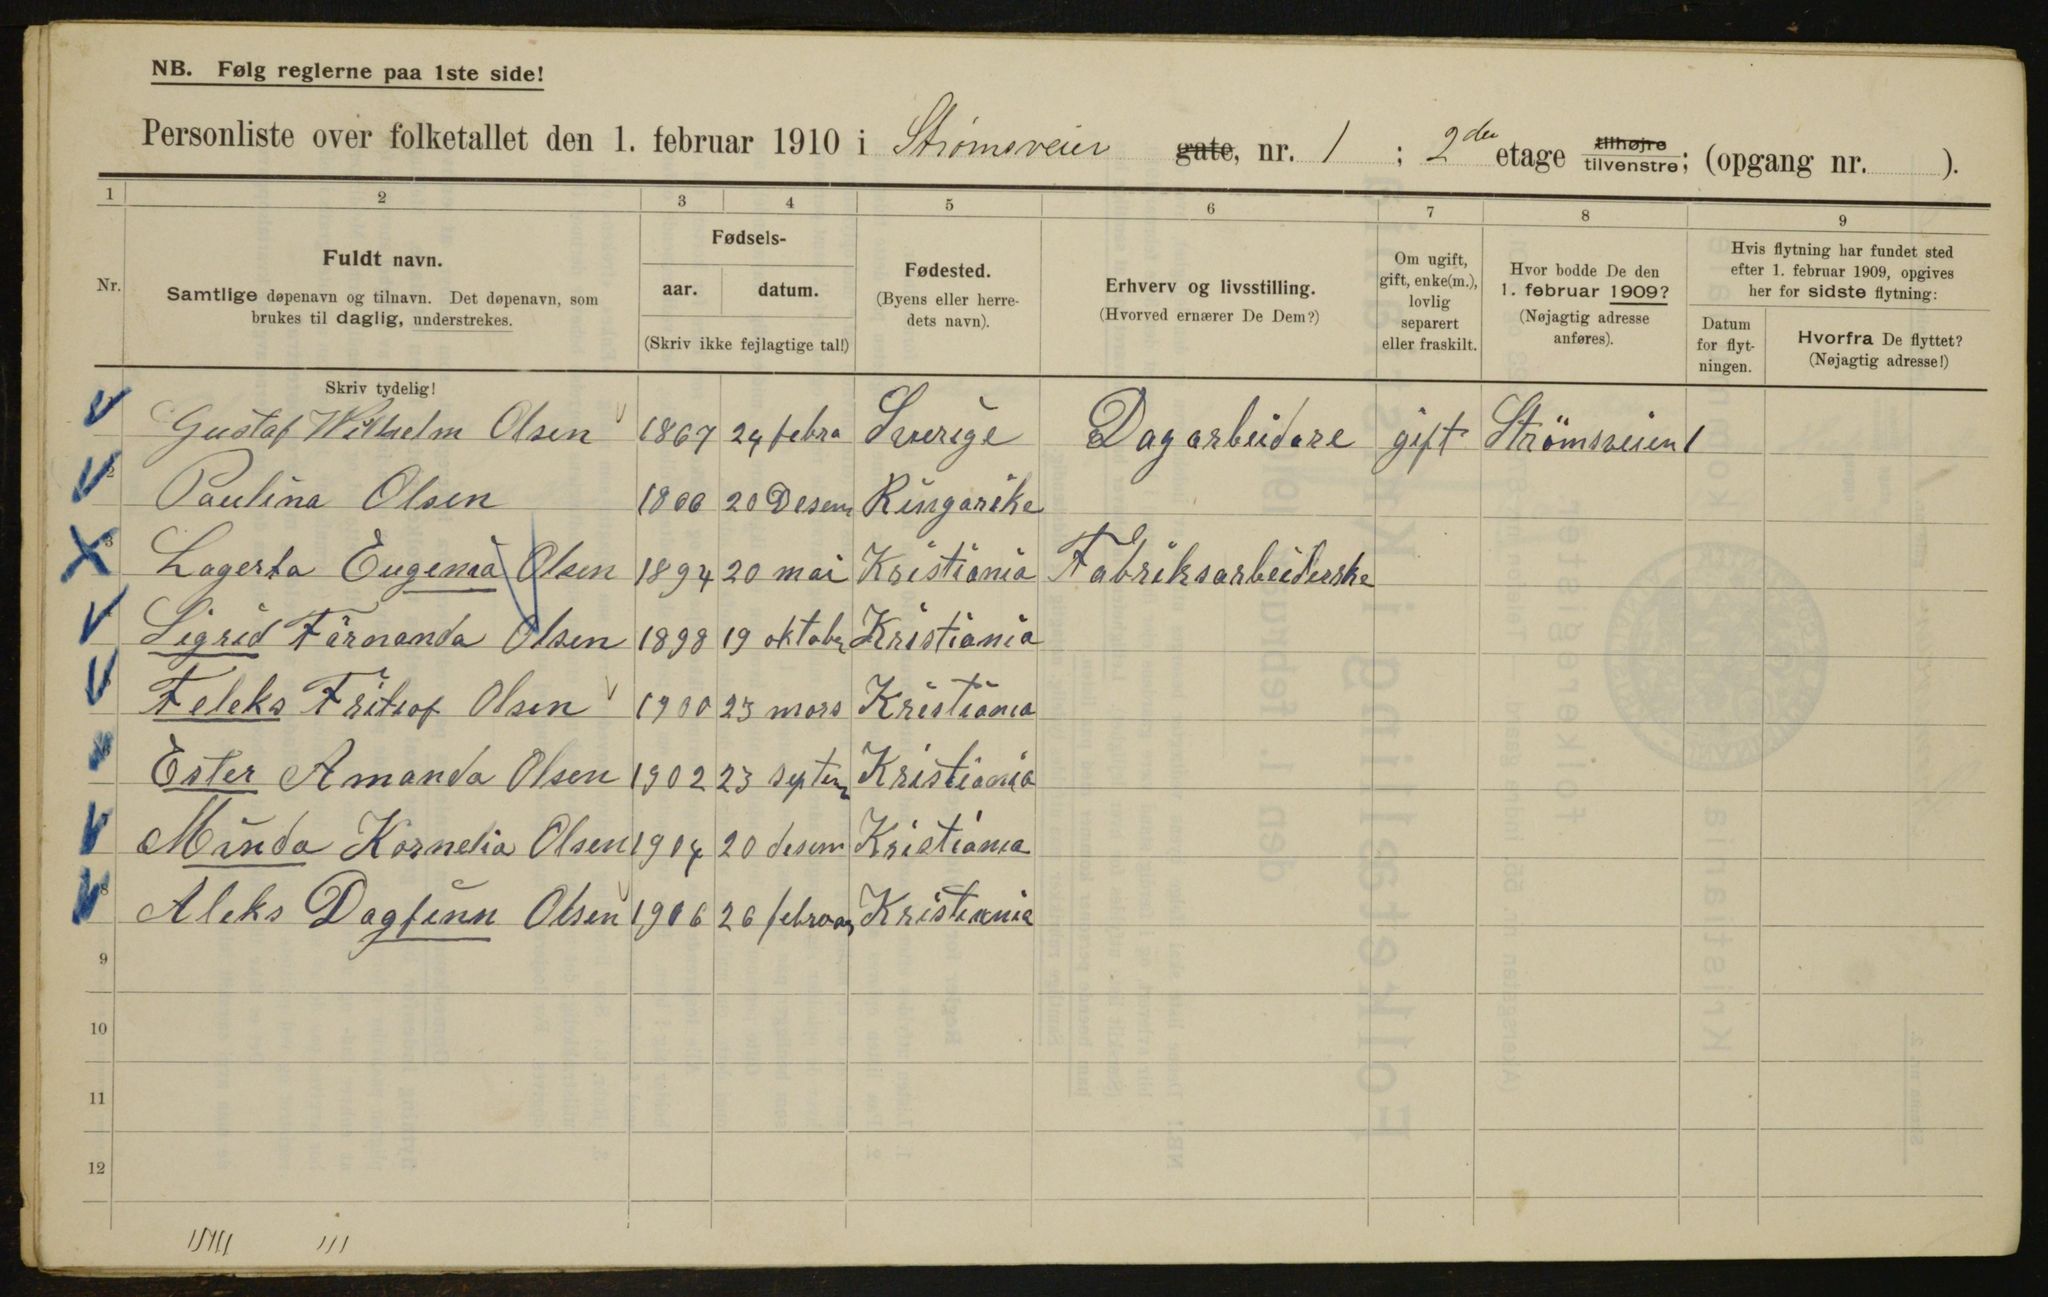 NB. Følg reglerne paa 1ste side!
Personliste over folketallet den 1. februar 1910 i Strømsveien gate, nr. 1 ; 2den etage tilhøjre tilvenstre; (opgang nr. ).
1 2 3 4 5 6 7 8 9
Nr.
Fuldt navn.
Samtlige døpenavn og tilnavn. Det døpenavn, som
brukes til daglig, understrekes.
Skriv tydelig!
Fødsels-
aar. datum.
(Skriv ikke fejlagtige tal!)
Fødested.
(Byens eller herre-
dets navn).
Erhverv og livsstilling.
(Hvorved ernærer De Dem?)
Om ugift,
gift, enke(m.),
lovlig
separert
eller fraskilt.
Hvor bodde De den
1. februar 1909?
(Nøjagtig adresse
anføres).
Hvis flytning har fundet sted
efter 1. februar 1909, opgives
her for sidste flytning:
Datum
for flyt-
ningen.
Hvorfra De flyttet?
(Nøjagtig adresse!)
Gustaf Wilhelm Olsen 1867 24 febra Sverige Dagarbeidare gift Strömsveien 1
2 Paulina Olsen 1866 20 Desem Ringarike
3 Lagerta Eugenia Olsen 1894 20 mai Kristiania Fabriksarbeiderske
Sigrid Färnanda Olsen 1898 19 oktobr Kristiania
Feleks Fritiof Olsen 1900 23 mars Kristiania
Ester Amanda Olsen 1902 23 septem Kristiania
Minda Kornelia Olsen 1904 20 desem Kristiania
8 Aleks Dagfinn Olsen 1906 26 februar Kristiania
9
10
11
12